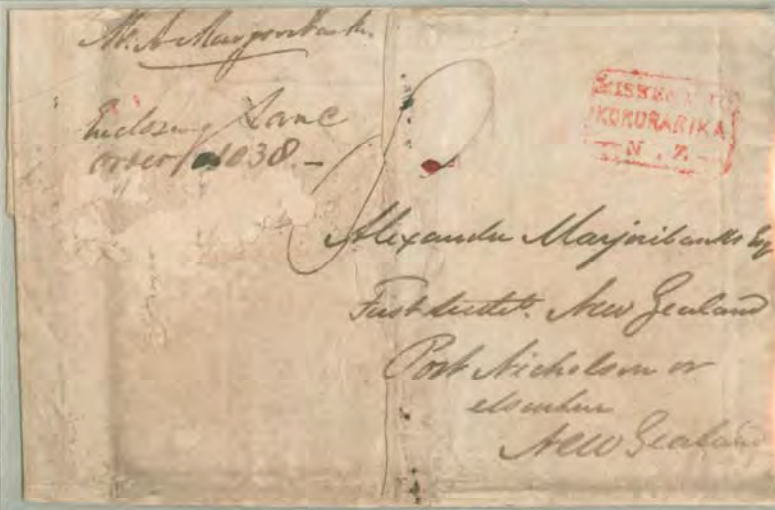 Mr. A. Marjoribanks.
Enclosing Land
order 1038. –
MISSENT TO
KORORARIKA
N. Z.
Alexander Marjoribanks Esq
First New Zealand
Port Nicholson or
elsewhere
New Zealand